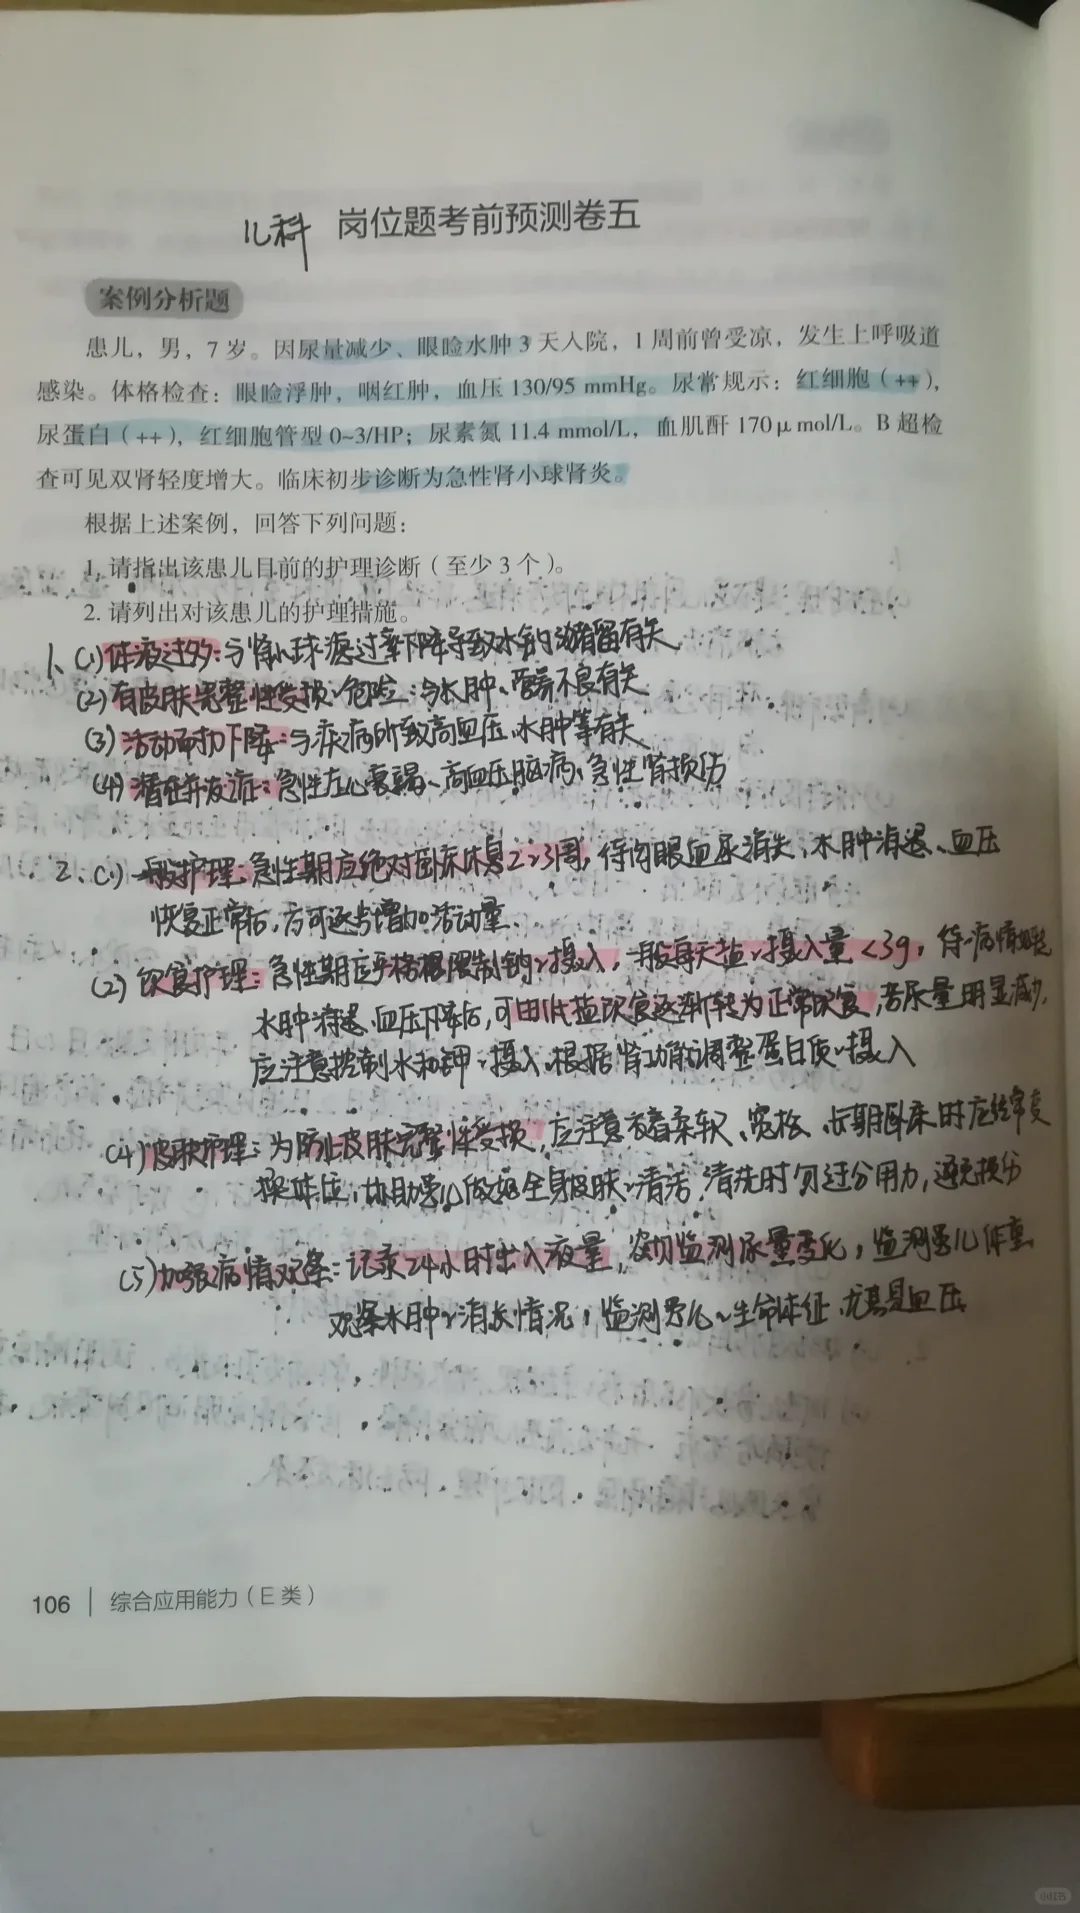 儿科 岗位题考前预测卷五
案例分析题
患儿，男，7岁。因尿量减少、眼睑水肿3天入院，1周前曾受凉，发生上呼吸道
感染。体格检查：眼睑浮肿，咽红肿，血压130/95 mmHg。尿常规示：红细胞（++），
尿蛋白（++），红细胞管型0~3/HP；尿素氮11.4 mmol/L，血肌酐170μmol/L。B超检
查可见双肾轻度增大。临床初步诊断为急性肾小球肾炎。
根据上述案例，回答下列问题：
1. 请指出该患儿目前的护理诊断（至少3个）。
2. 请列出对该患儿的护理措施。
1、(1)体液过多：与肾小球滤过率下降导致水钠潴留有关
(2)有皮肤完整性受损、危险：与水肿、营养不良有关
(3)活动耐力下降：与疾病所致高血压、水肿等有关
(4)潜在并发症：急性左心衰弱、高血压脑病、急性肾损伤
2、(1)一般护理：急性期应绝对卧床休息2~3周，待肉眼血尿消失、水肿消退、血压
恢复正常后，方可逐步增加活动量
(2)饮食护理：急性期应严格限制钠、摄入，一般每天盐、摄入量<3g，待病情好转
水肿消退、血压下降后，可由低盐饮食逐渐转为正常饮食，若尿量明显减少，
应注意控制水和钾、摄入，根据肾功能调整蛋白质、摄入
(4)皮肤护理：为防止皮肤完整性受损，应注意衣着柔软、宽松、长期卧床时应经常变
换体位，协助患儿做好全身皮肤、清洁，清洗时勿过分用力，避免损伤
(5)加强病情观察：记录24小时出入液量，密切监测尿量变化，监测患儿体重
观察水肿、消长情况，监测患儿、生命体征，尤其是血压
106 | 综合应用能力（E类）
小红书